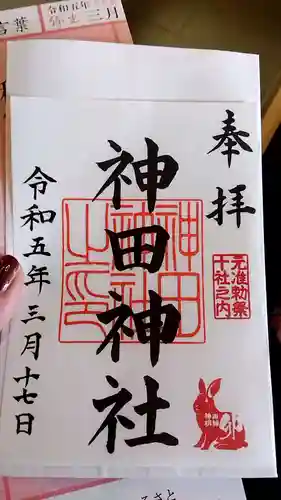 言葉
令和五年
弥生
三月
奉拝
神田神社
元准勅祭
十社之内
神田神社之印
令和五年三月十七日
卯